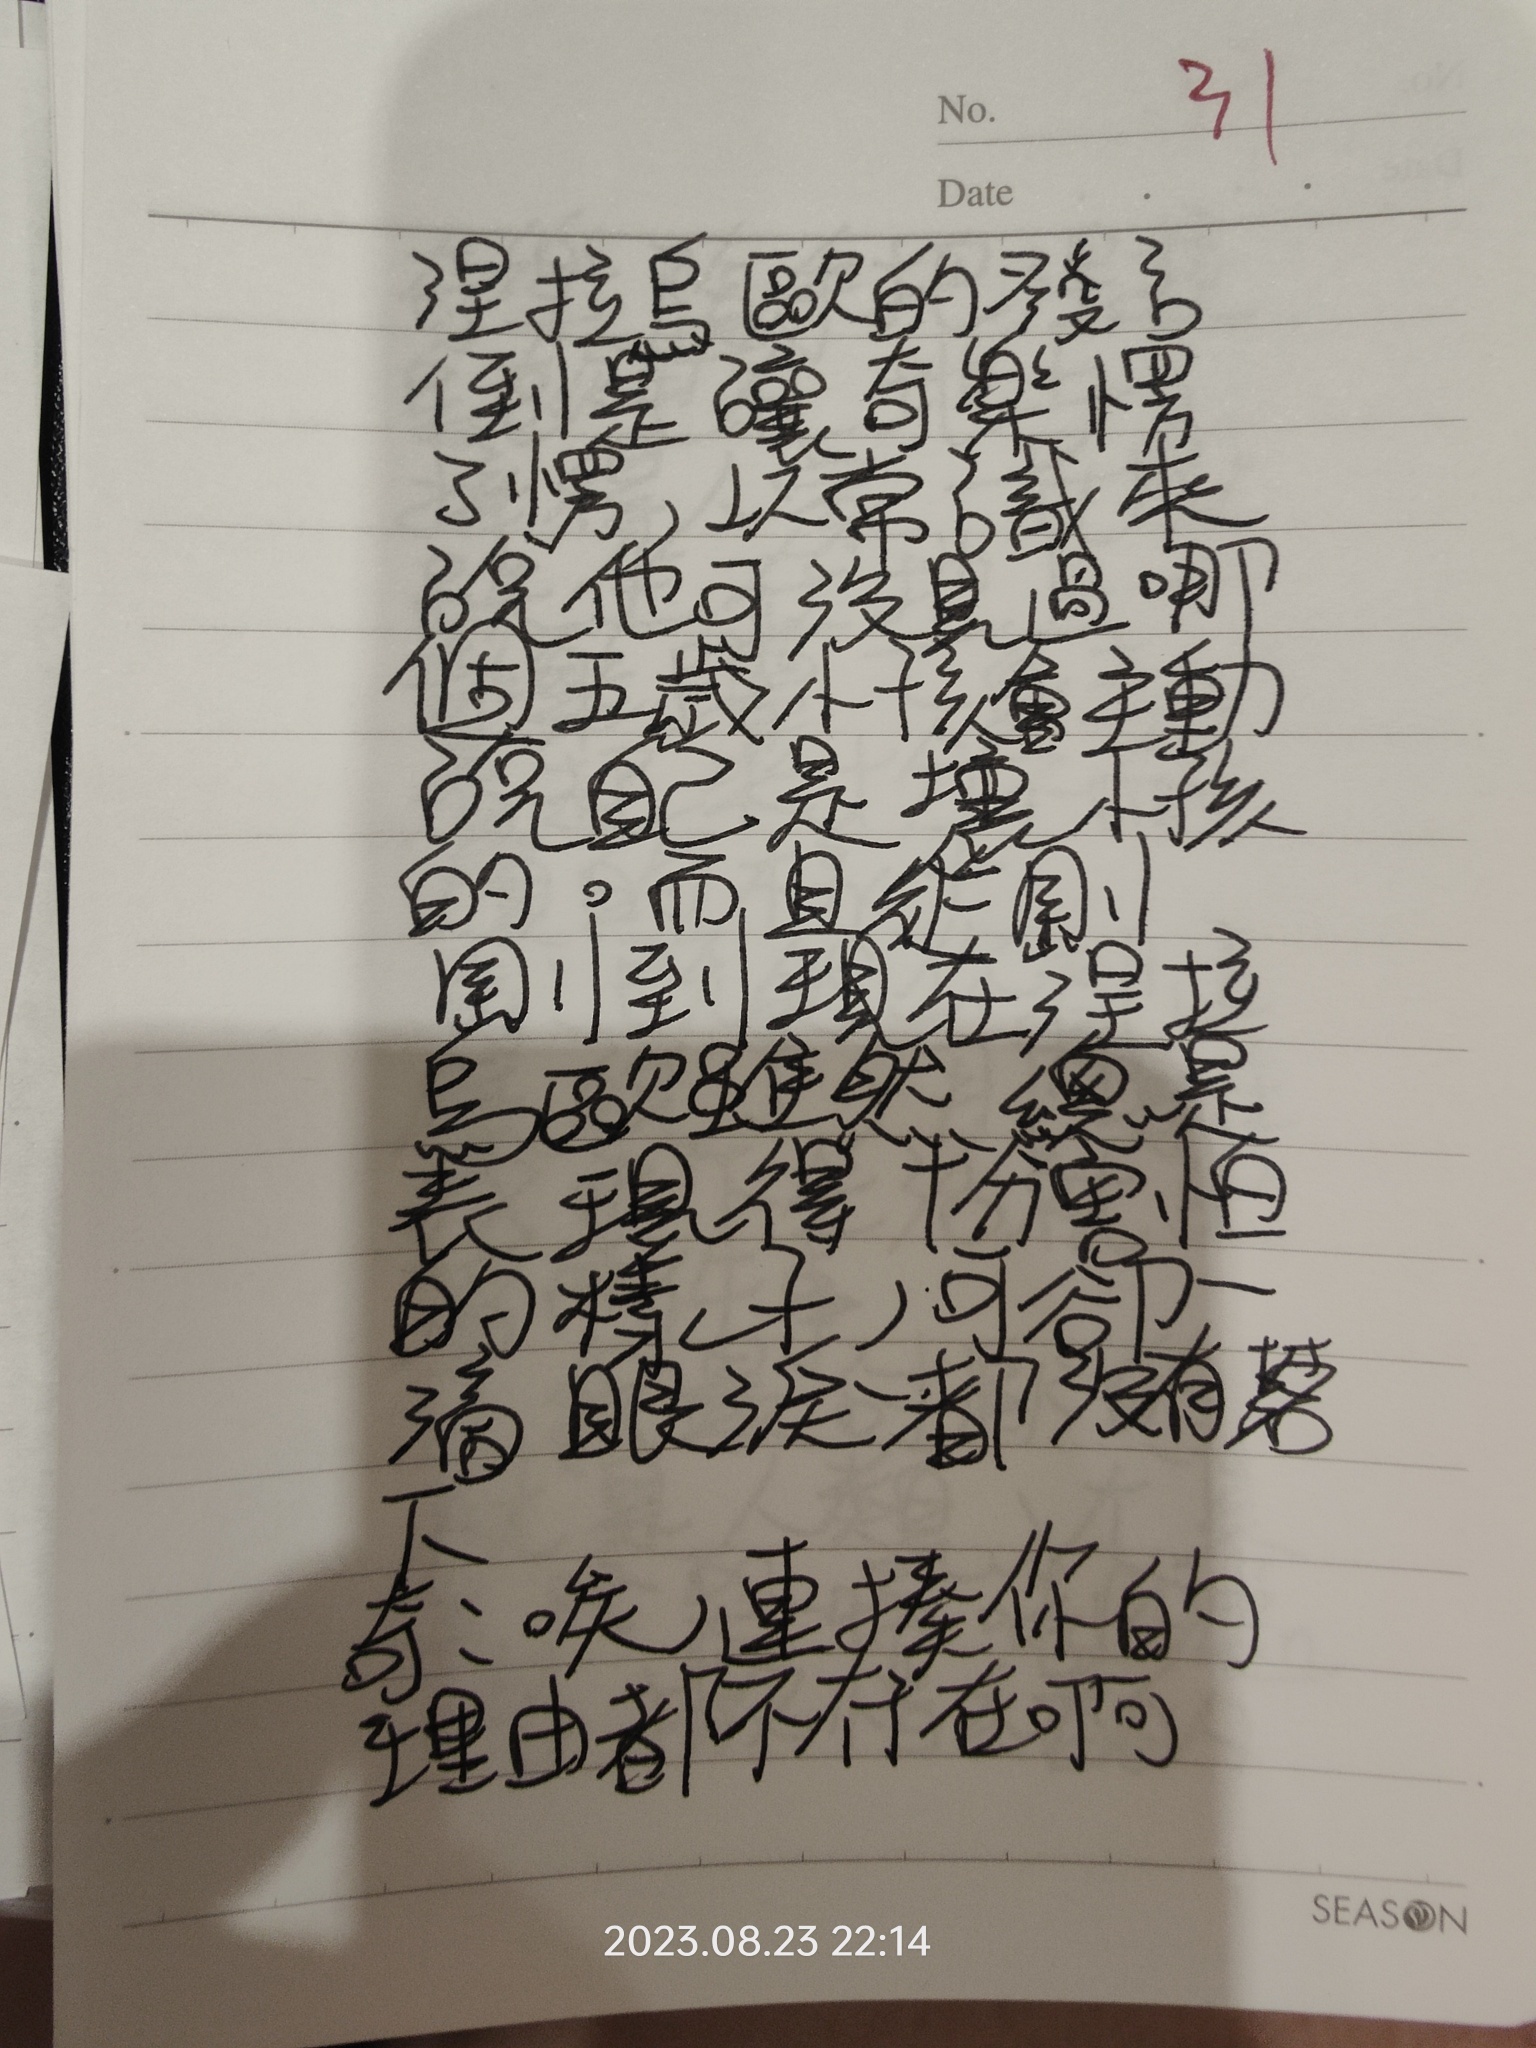 No. 31
Date
涅拉烏歐的發言
倒是讓奇樂愣
了愣,以常識來
說他可沒見過哪
個五歲小孩會主動
說自己是壞小孩
的。而且從剛
剛到現在涅拉
烏歐雖然總是
表現得十份畏怛
的樣子,可卻一
滴眼淚都沒有落
下
奇:唉,連揍你的
理由都不存在啊
SEASON
2023.08.23 22:14